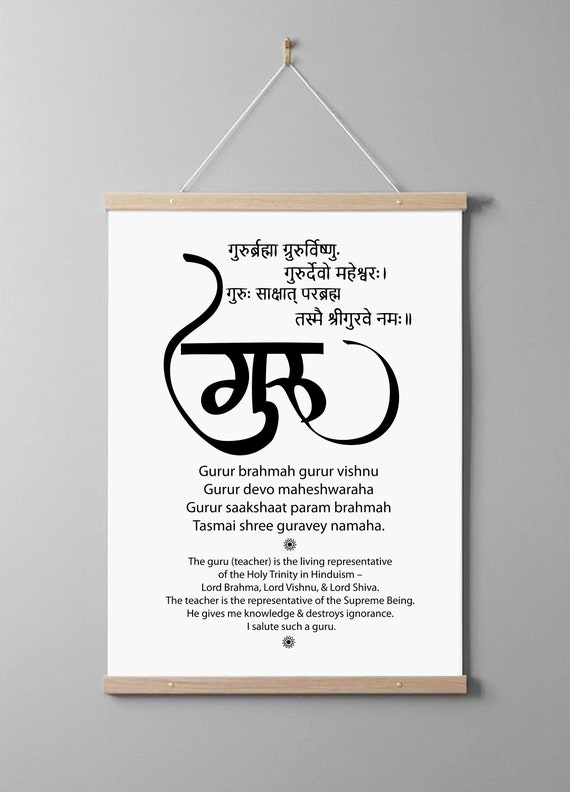 गुरुर्ब्रह्मा ग्रुरुर्विष्णु.
गुरुर्देवो महेश्वरः।
गुरुः साक्षात् परब्रह्म
तस्मै श्रीगुरवे नमः॥
गुरु
Gurur brahmah gurur vishnu
Gurur devo maheshwaraha
Gurur saakshaat param brahmah
Tasmai shree guravey namaha.
The guru (teacher) is the living representative
of the Holy Trinity in Hinduism –
Lord Brahma, Lord Vishnu, & Lord Shiva.
The teacher is the representative of the Supreme Being.
He gives me knowledge & destroys ignorance.
I salute such a guru.